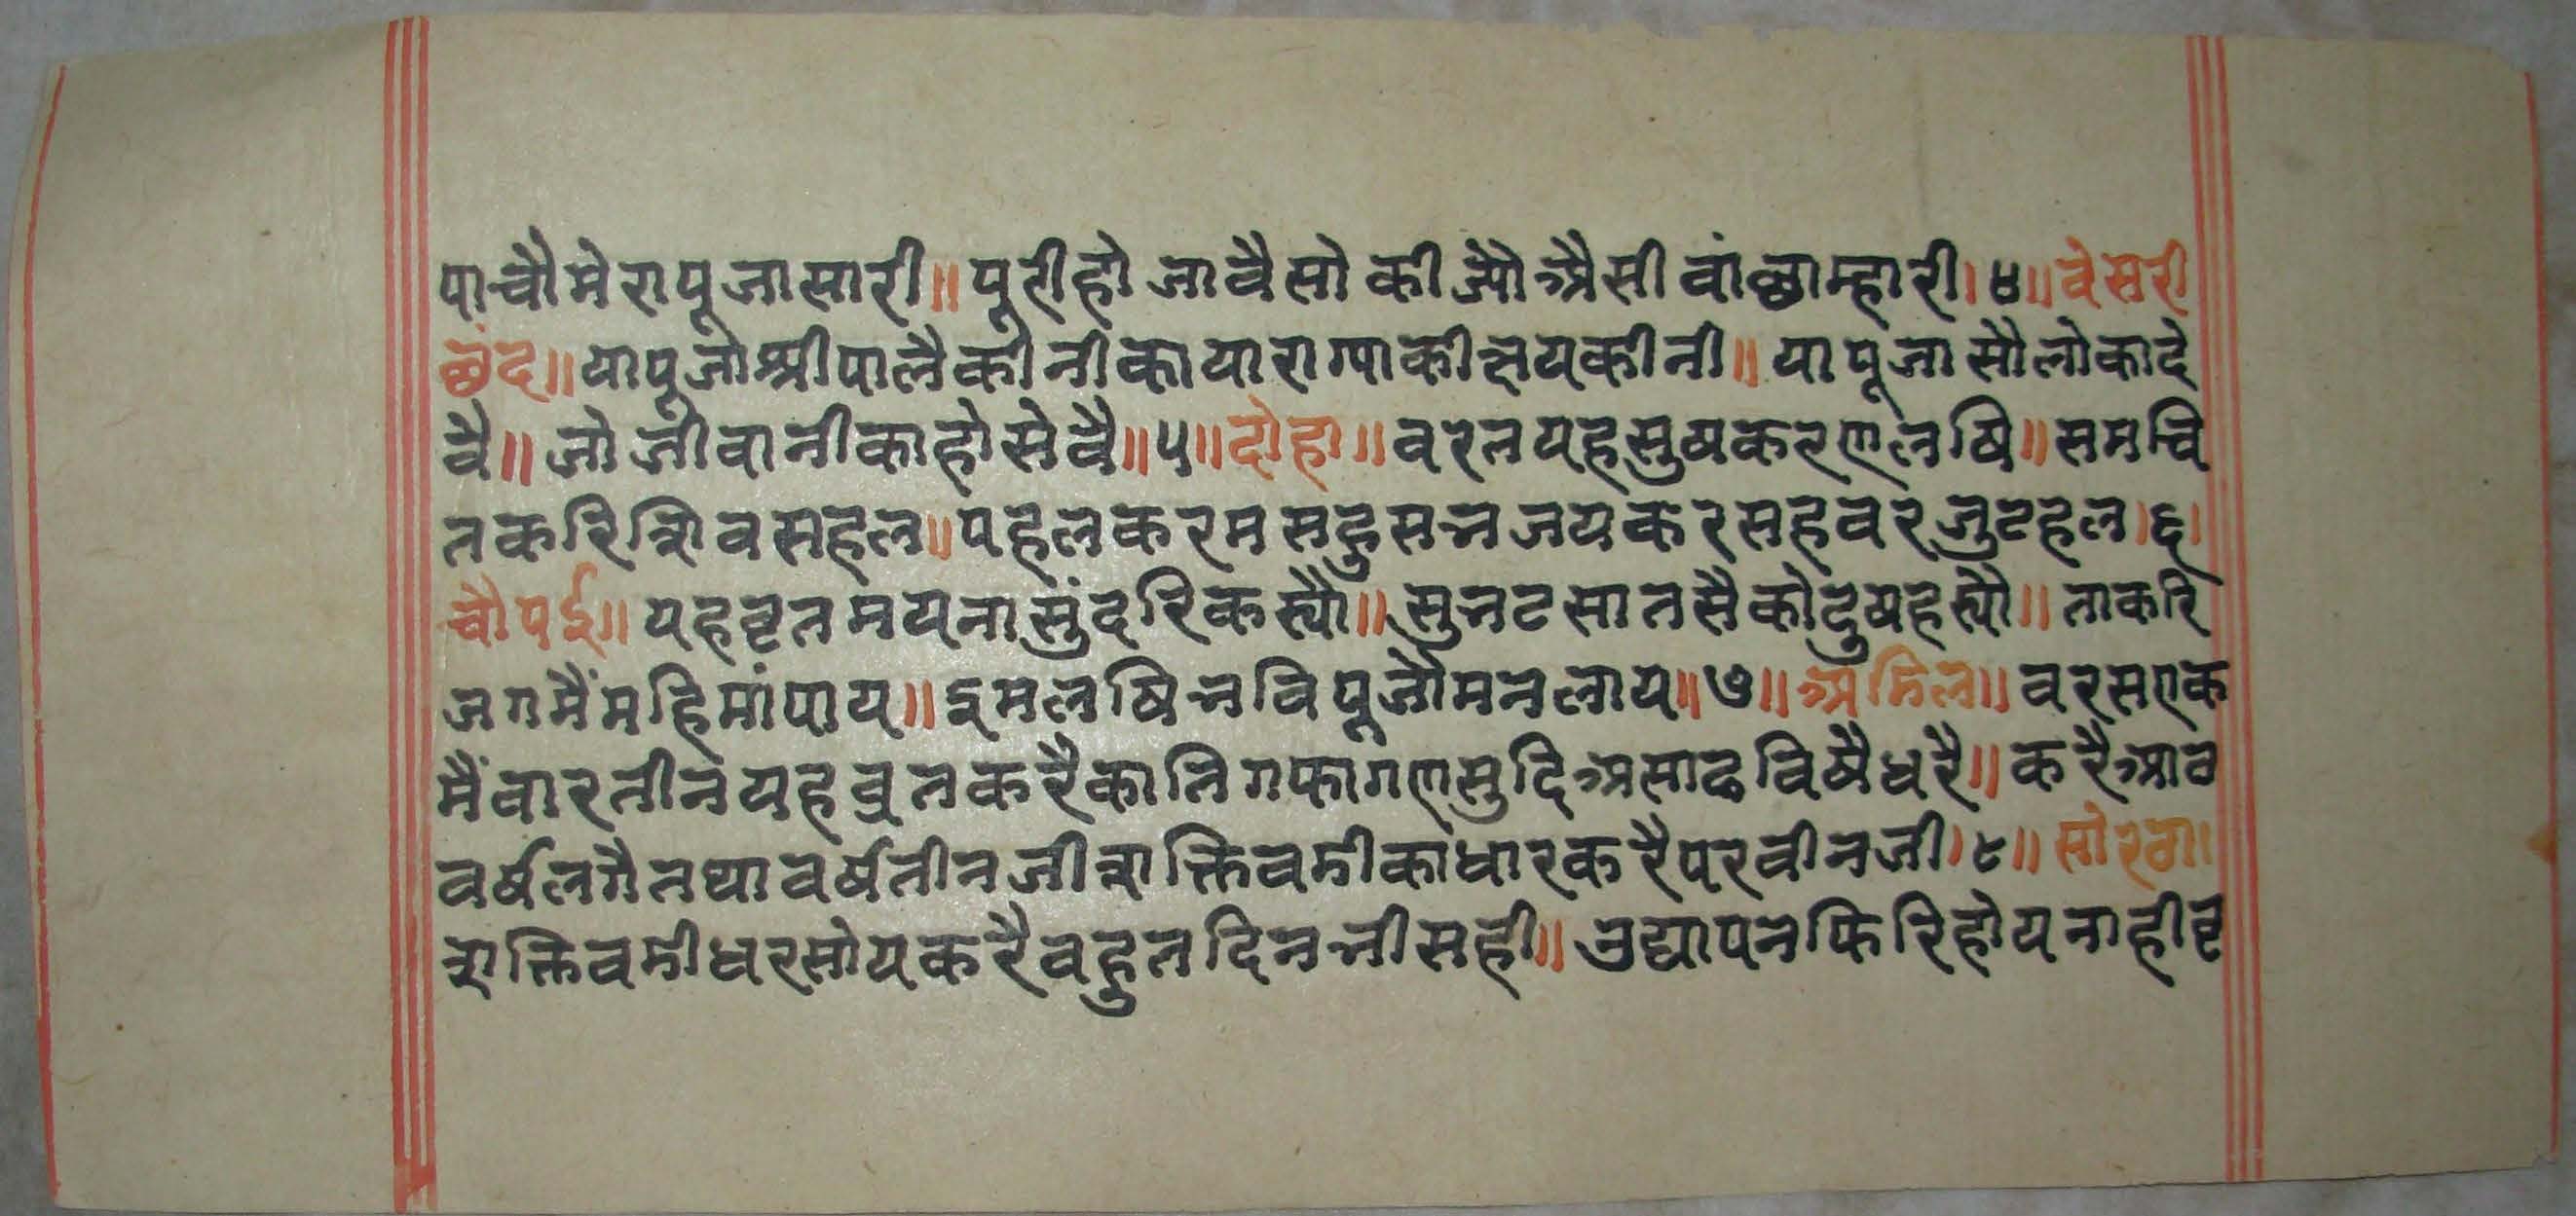 पाचौमेरापूजासारी॥पूरीहोजावैसोकीज्यौअैसीवांछाम्हारी।४॥वेसरी
छंद॥यापूजाश्रीपालैकीनीकायाराग्याकीक्षयकीनी॥यापूजासौलोकादे
वै॥जोजीवानीकाहोसेवै॥५॥दोहा॥वरतयहसुषकरणलषि॥समचि
तकरिशिवसहल॥पहलकरमसहुसन्नजयकरसहवरजुटहल।६।
चौपई॥यहवृतमयनासुंदरिकस्यौ॥सुभटसातसैकोदुषहस्यौ॥ताकरि
जगमैंमहिमांपाय॥इमलषिभविपूजौमनलाय॥७॥अडिल॥वरसएक
मैंवारतीनयहव्रतकरैकातिगफागणसुदिअसाढविषैधरै॥करैआव
वर्षलगैतथावर्षतीनजीशक्तिवडीकाधारकरैपरवीनजी।८॥सोरठा।
शक्तिवडीधरसोयकरैवहुतदिनभीसही॥उद्यापनफिरिहोयनाहीवृ